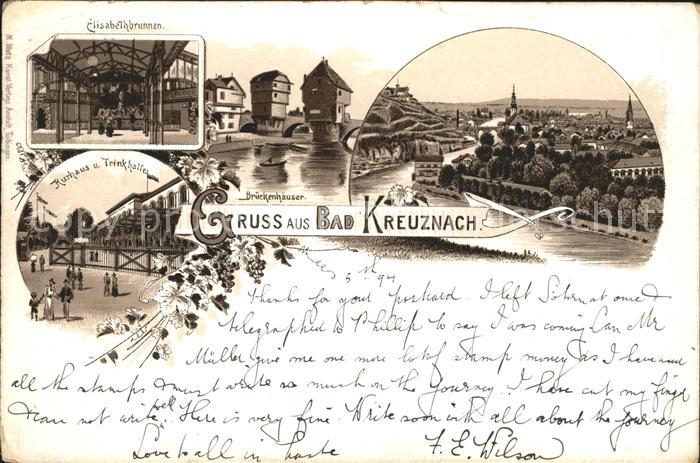 Elisabethbrunnen.
Kurhaus u. Trinkhalle.
Brückenhäuser.
GRUSS AUS BAD KREUZNACH.
5th 94
Thanks for your postcard. I left at once &
telegraphed to Phillip to say I was coming Can Mr
Müller give me one more lot of stamp money as I have
all the stamps & must write so much on the journey. I have cut my finger
& can not write well. Here is very fine. Write soon with all about the journey
Love to all in haste F. E. Wilson